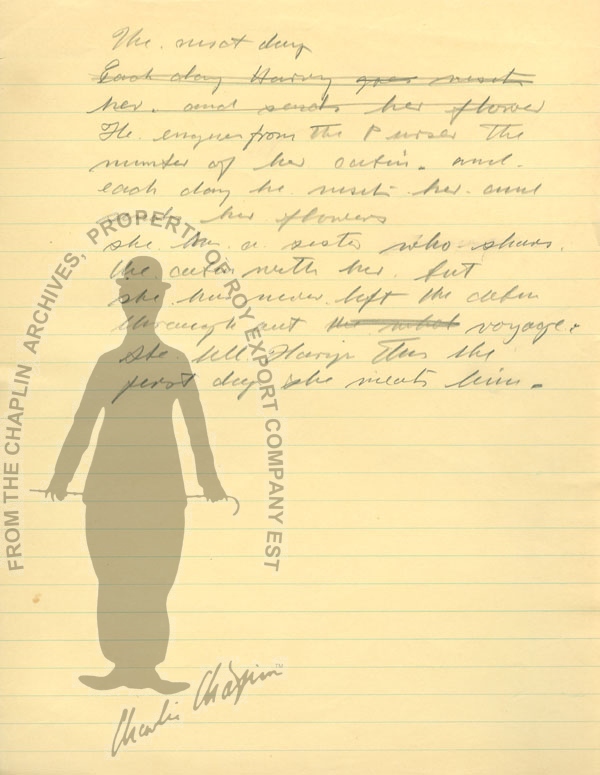 The next day
Each day Harvey goes visit
her. and sends her flower
He enquires from the Purser the
number of her cabin. and.
each day he visits her. and
sends her flowers
she has a sister who shares.
the cabin with her. but
she has never left the cabin
through out the whole voyage.
She tell Harry this the
first day she meets him.
FROM THE CHAPLIN ARCHIVES, PROPERTY OF ROY EXPORT COMPANY EST
Charlie Chaplin ™